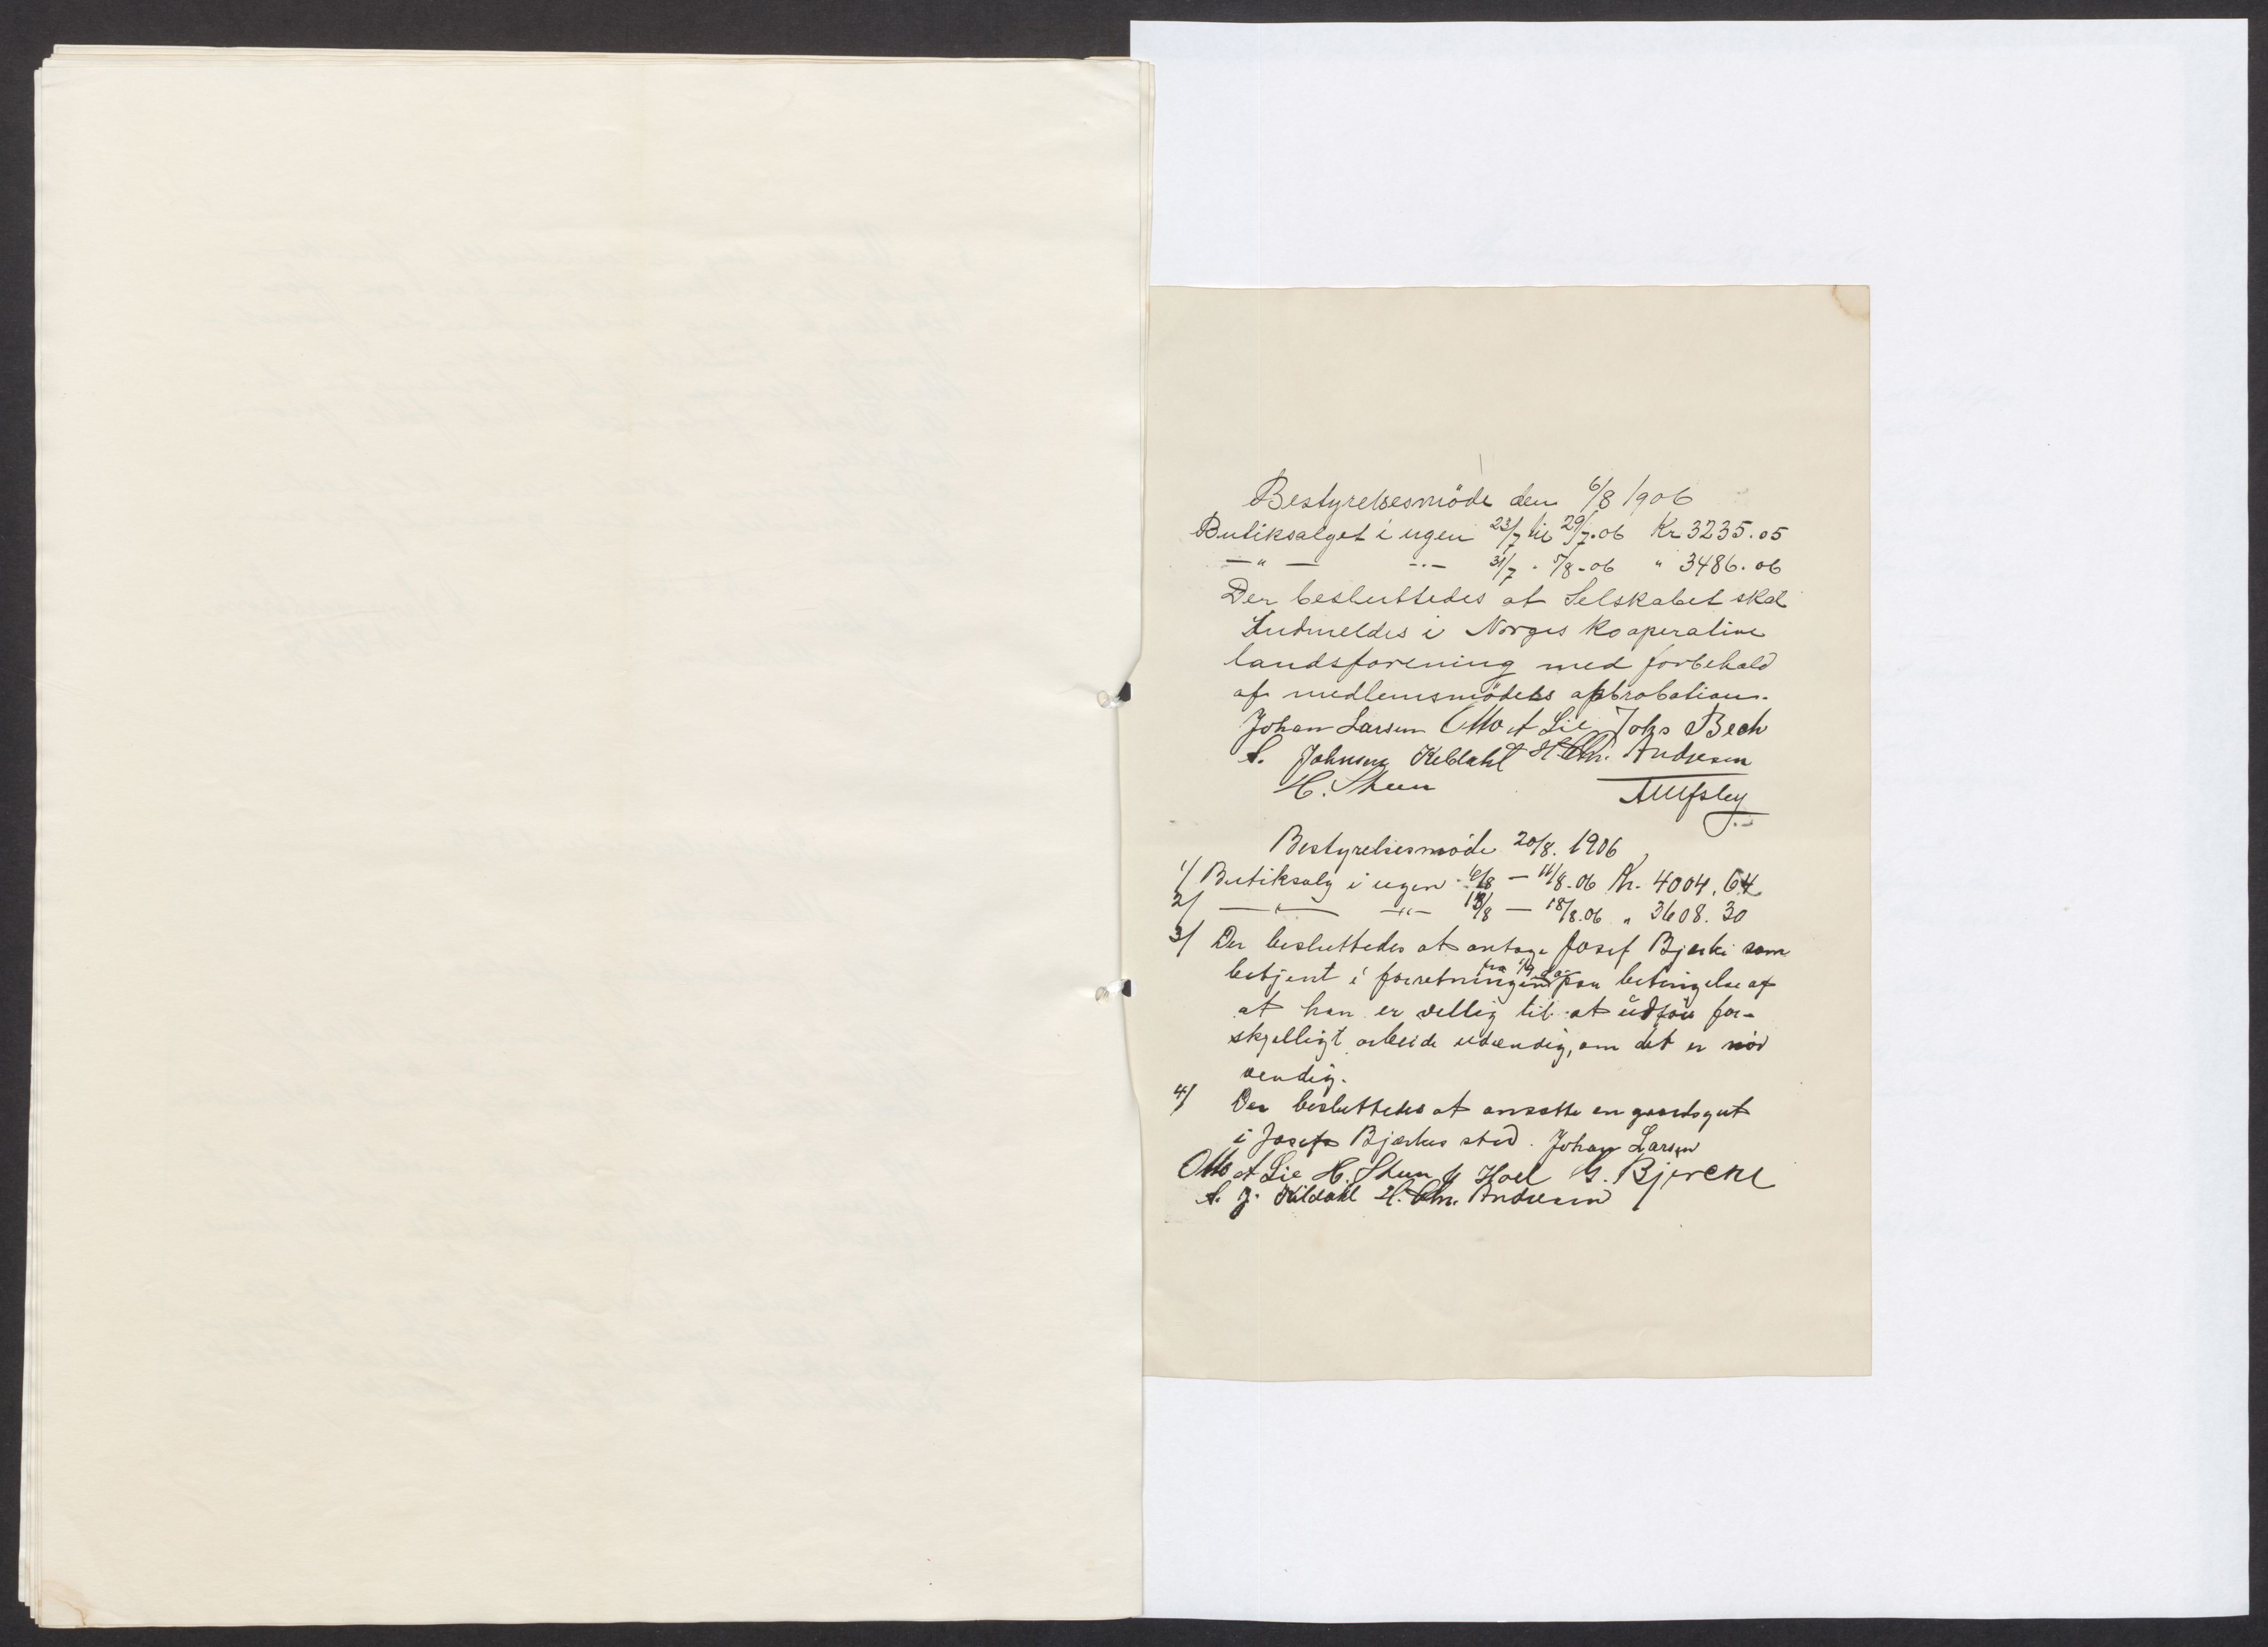 Bestyrelsesmöde den 6/8 1906
Butiksalget i ugen 23/7 til 29/7.06 Kr 3235.05
—"— -"- 31/7 . 5/8-06 " 3486.06
Der besluttedes at Selskabet skal
Indmeldes i Norges Kooperative
landsforening med forbehold
af medlemsmödets approbation.
Johan Larsen Otto A Lie Johs Bech
A. Johnsen Kildahl H. Chr. Andresen
H. Steen
Bestyrelsesmöde 20/8. 1906
1/ Butiksalg i ugen 6/8 — 11/8.06 Kr. 4004.64
2/ —"— —"— 13/8 — 18/8.06 " 3608.30
3/ Der besluttedes at antage Josef Bjerke som
betjent i forretningen fra 1/9 d.a. paa betingelse af
at han er villig til at udföre for-
skjelligt arbeide udvendig, om det er nöd
vendig.
4/ Der besluttedes at ansætte en gaardsgut
i Josefs Bjerkes sted. Johan Larsen
Otto A Lie H. Steen J Hoel G. Bjercke
A. J. Kildahl H. Chr. Andresen